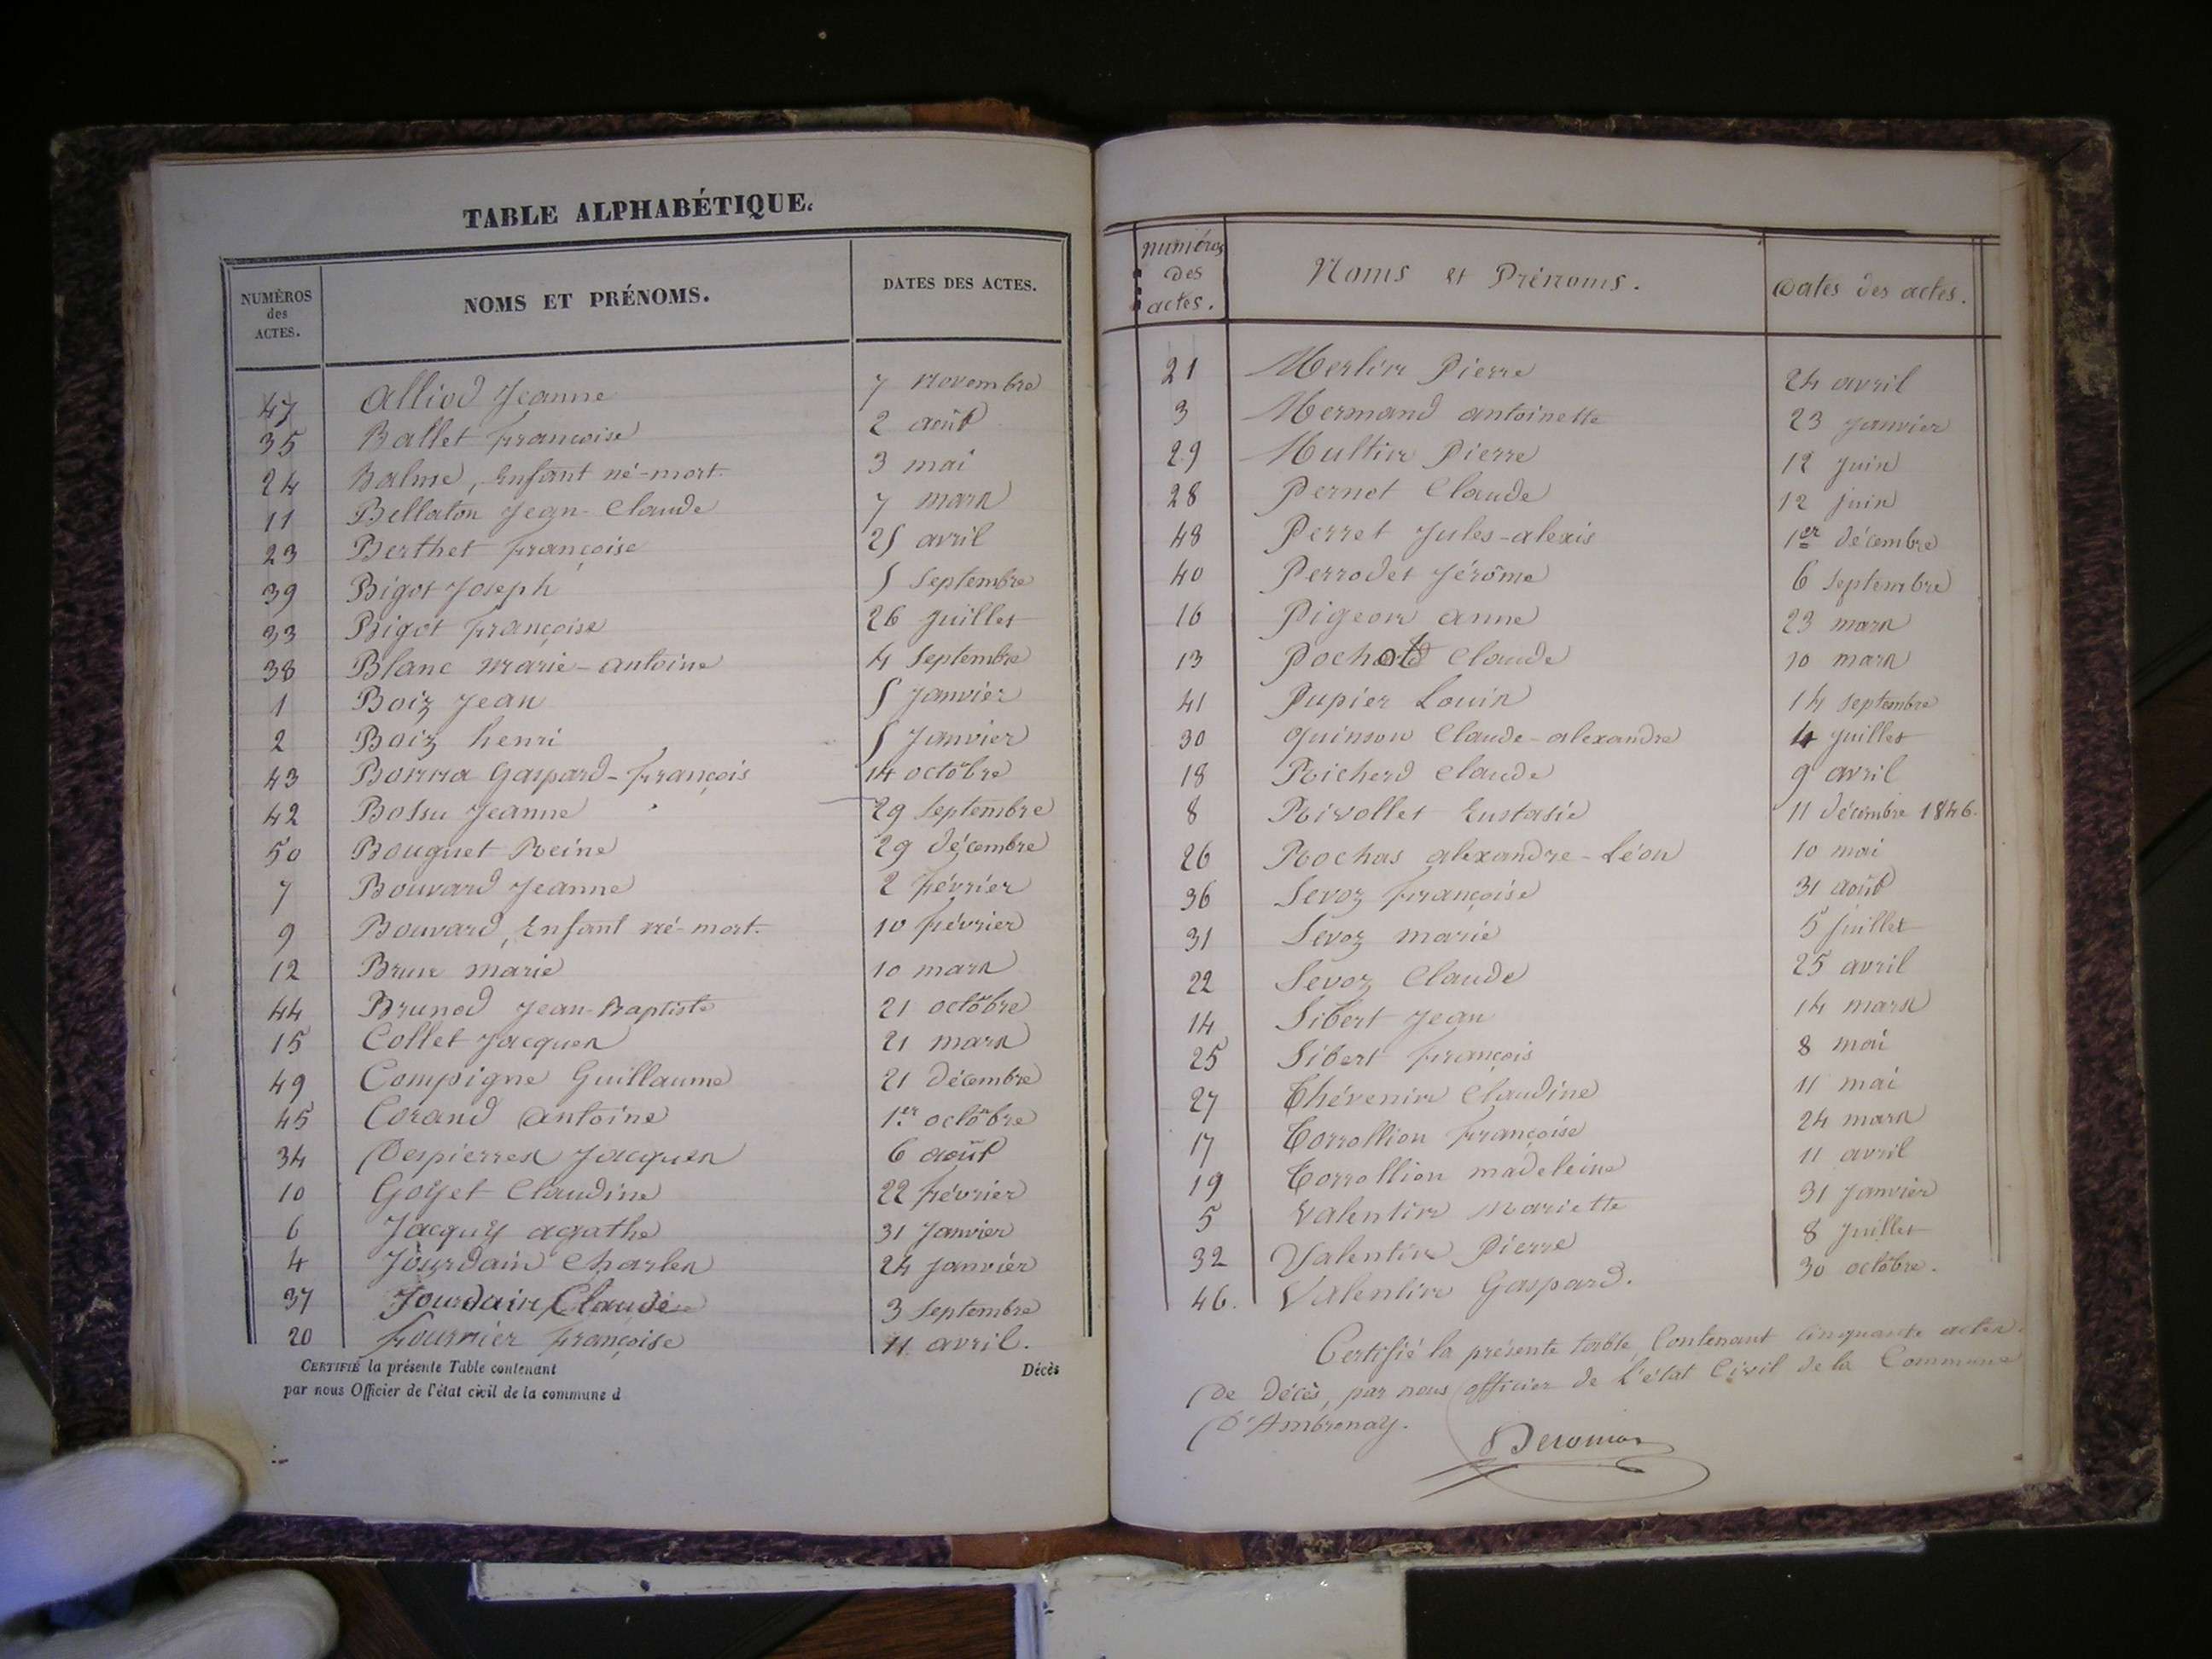 TABLE ALPHABÉTIQUE.
NUMÈROS des ACTES. NOMS ET PRÉNOMS. DATES DES ACTES.
47 Alliod Jeanne 7 Novembre
35 Ballet Françoise 2 août
24 Balme, Enfant né-mort. 3 mai
11 Bellaton Jean-Claude 7 mars
23 Berthet Françoise 25 avril
39 Bigot Joseph 5 Septembre
33 Bigot Françoise 26 Juillet
38 Blanc Marie-antoine 4 Septembre
1 Boiz Jean 5 Janvier
2 Boiz henri 5 Janvier
43 Gaspard-François 14 octobre
42 Bossu Jeanne 29 Septembre
50 Bouguet Reine 29 Décembre
7 Bouvard Jeanne 2 Février
9 Bouvard, Enfant né-mort. 10 Février
12 Brun marie 10 mars
44 Brunod Jean-Baptiste 21 octobre
15 Collet Jacques 21 mars
49 Compigne Guillaume 21 Décembre
45 Corand Antoine 1er octobre
34 Despierres Jacques 6 août
10 Goyet Claudine 22 Février
6 Jacquy agathe 31 Janvier
4 Jourdain Charles 24 Janvier
37 Jourdain Claude 3 Septembre
20 Fournier Françoise 11 avril.
CERTIFIÉ la présente Table contenant Décès
par nous Officier de l'état civil de la commune d
numéros des actes. Noms et Prénoms. Dates des actes.
21 Merlin Pierre 24 avril
3 Mermand antoinette 23 Janvier
29 Multin Pierre 12 Juin
28 Pernet Claude 12 juin
48 Perret Jules-alexis 1er Décembre
40 Perrodet Jérôme 6 Septembre
16 Pigeon anne 23 mars
13 Claude 10 mars
41 Pupier Louis 14 Septembre
30 Quinson Claude-alexandre 4 Juillet
18 Richerd Claude 9 avril
8 Rivollet Eustasie 11 Décembre 1846.
26 Rochas alexandre-Léon 10 mai
36 Sevoz Françoise 31 août
31 Sevoz marie 5 Juillet
22 Sevoz Claude 25 avril
14 Sibert Jean 14 mars
25 Sibert François 8 mai
27 Thévenin Claudine 11 mai
17 Torrollion Françoise 24 mars
19 Torrollion madeleine 11 avril
5 Valentin Mariette 31 Janvier
32 Valentin Pierre 8 Juillet
46. Valentin Gaspard. 30 octobre.
Certifié la présente table Contenant Cinquante actes
de Décès, par nous officier de l'état Civil de la Commune
d'Ambronay.